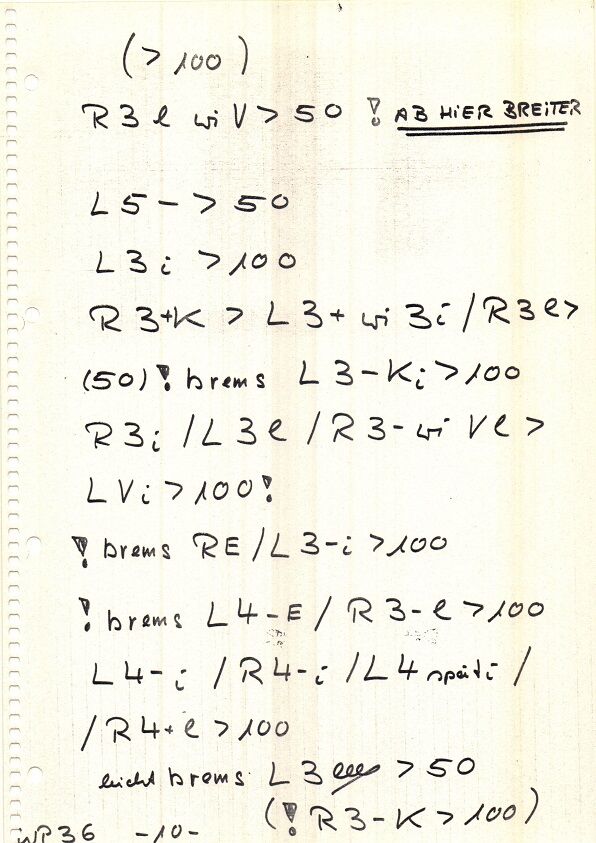 (> 100)
R 3 l wi V > 50 ! AB HIER BREITER
L 5 - > 50
L 3 i > 100
R 3+K > L 3+ wi 3i / R 3 l >
(50) ! brems L 3-Ki > 100
R 3i / L 3 l / R 3- wi V l >
L Vi > 100 !
! brems RE / L 3-i > 100
! brems L 4-E / R 3-l > 100
L 4-i / R 4-i / L 4 späti /
/ R 4+l > 100
leicht brems L 3 > 50
(! R 3-K > 100)
WP 36 -10-